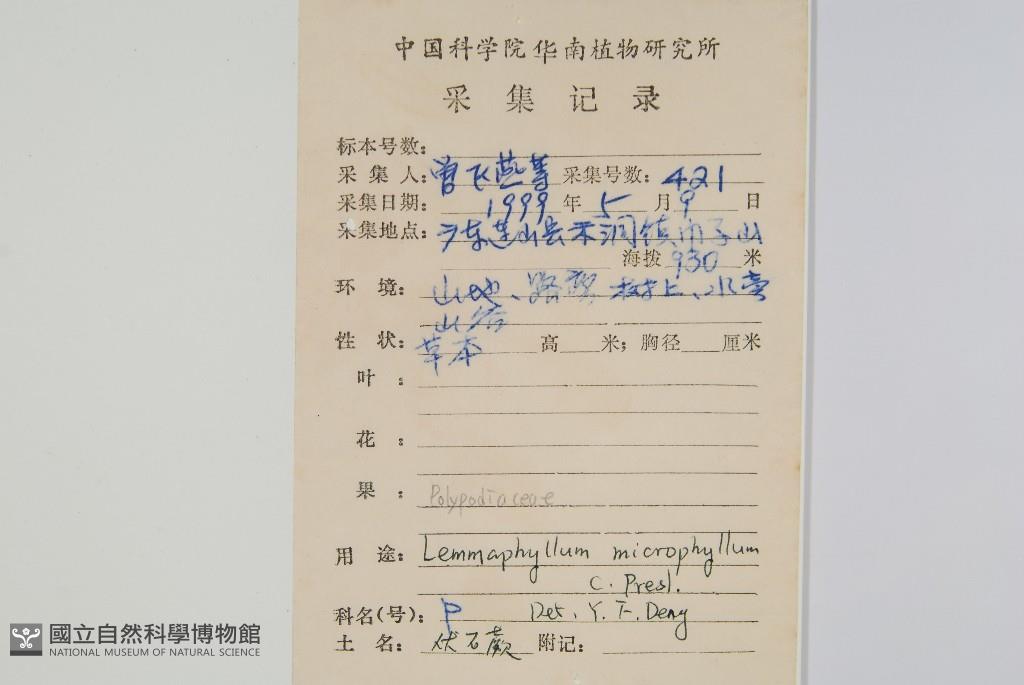 中国科学院华南植物研究所
采集记录
标本号数:
采集人: 曾飞燕等 采集号数: 421
采集日期: 1999 年 5 月 9 日
采集地点: 广东连山县禾洞镇 子山
海拨 930 米
环境: 山地、路旁 树上、水旁
山谷
性状: 草本 高 米; 胸径 厘米
叶:
花:
果: Polypodiaceae
用途: Lemmaphyllum microphyllum
C. Presl.
科名(号): P Det. Y. F. Deng
土名: 伏石蕨 附记:
國立自然科學博物館
NATIONAL MUSEUM OF NATURAL SCIENCE